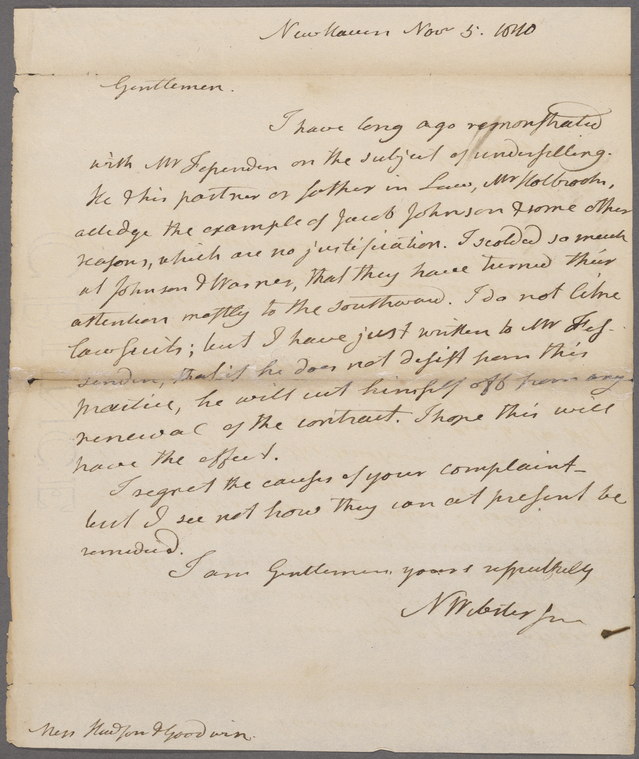 New Haven Nov 5. 1810
Gentlemen.
I have long ago remonstrated
with Mr Fessenden on the subject of underselling.
He & his partner or father in Law, Mr Holbrook,
alledge the example of Jacob Johnson & some other
reasons, which are no justification. I scolded so much
at Johnson & Warner, that they have turned their
attention mostly to the southward. I do not like
lawsuits; but I have just written to Mr Fes-
senden, that if he does not desist from this
practice, he will cut himself off from any
renewal of the contract. I hope this will
have the effect.
I regret the causes of your complaint
but I see not how they can at present be
remedied.
I am Gentlemen, yours respectfully
N Webster Jun
Mess Hudson & Goodwin.